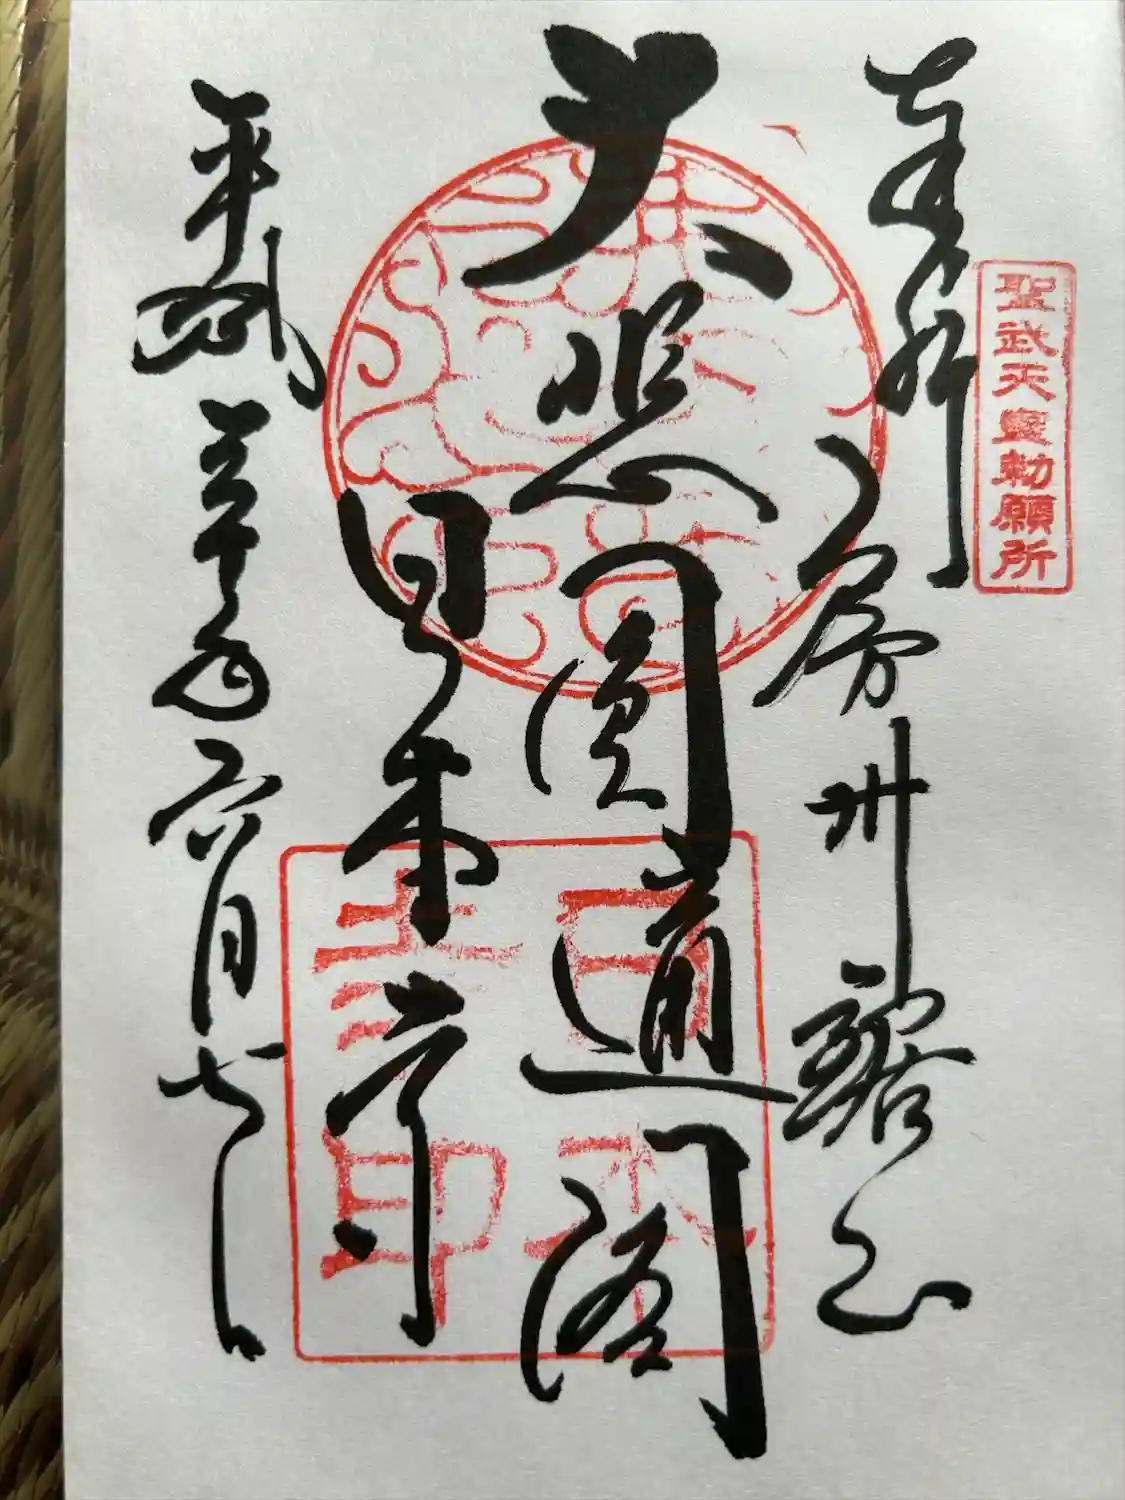 聖武天皇勅願所
奉拝
房州鋸山
大悲圓通閣
日本寺
平成三十年六月七日
日本寺印